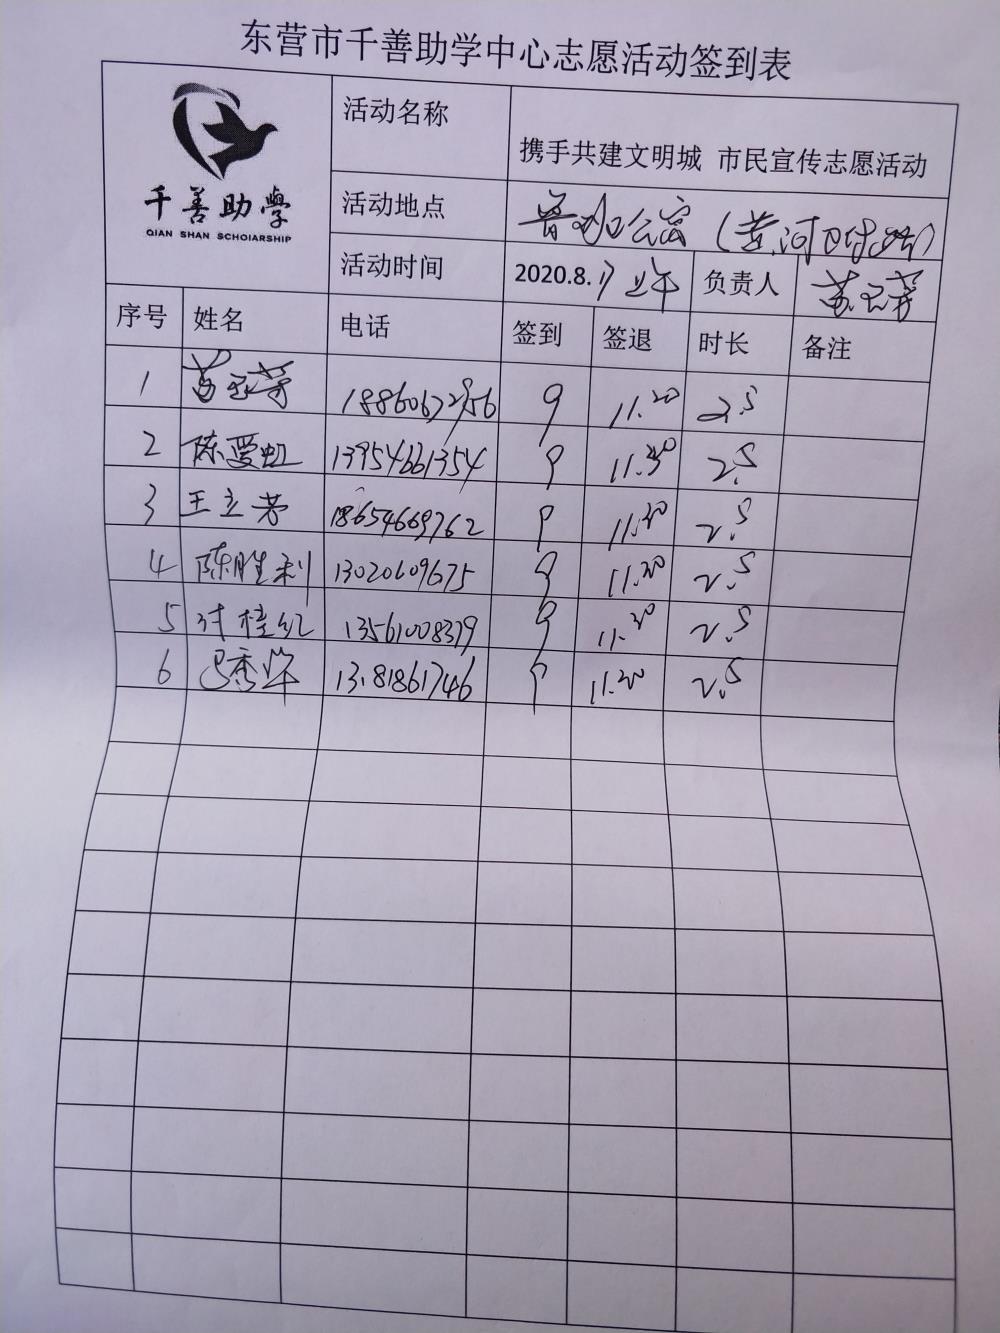 东营市千善助学中心志愿活动签到表
千善助學
QIAN SHAN SCHOLARSHIP
活动名称 携手共建文明城 市民宣传志愿活动
活动地点 鲁班公寓(黄河
活动时间 2020.8.17 上午 负责人
序号 姓名 电话 签到 签退 时长 备注
1 9 11.20 2.5
2 陈爱虹 13954661354 9 11.30 2.5
3 王立芳 18654669762 9 11.20 2.5
4 陈胜利 13020609675 9 11.20 2.5
5 付桂红 13561008379 9 11.20 2.5
6 13181861746 9 11.20 2.5